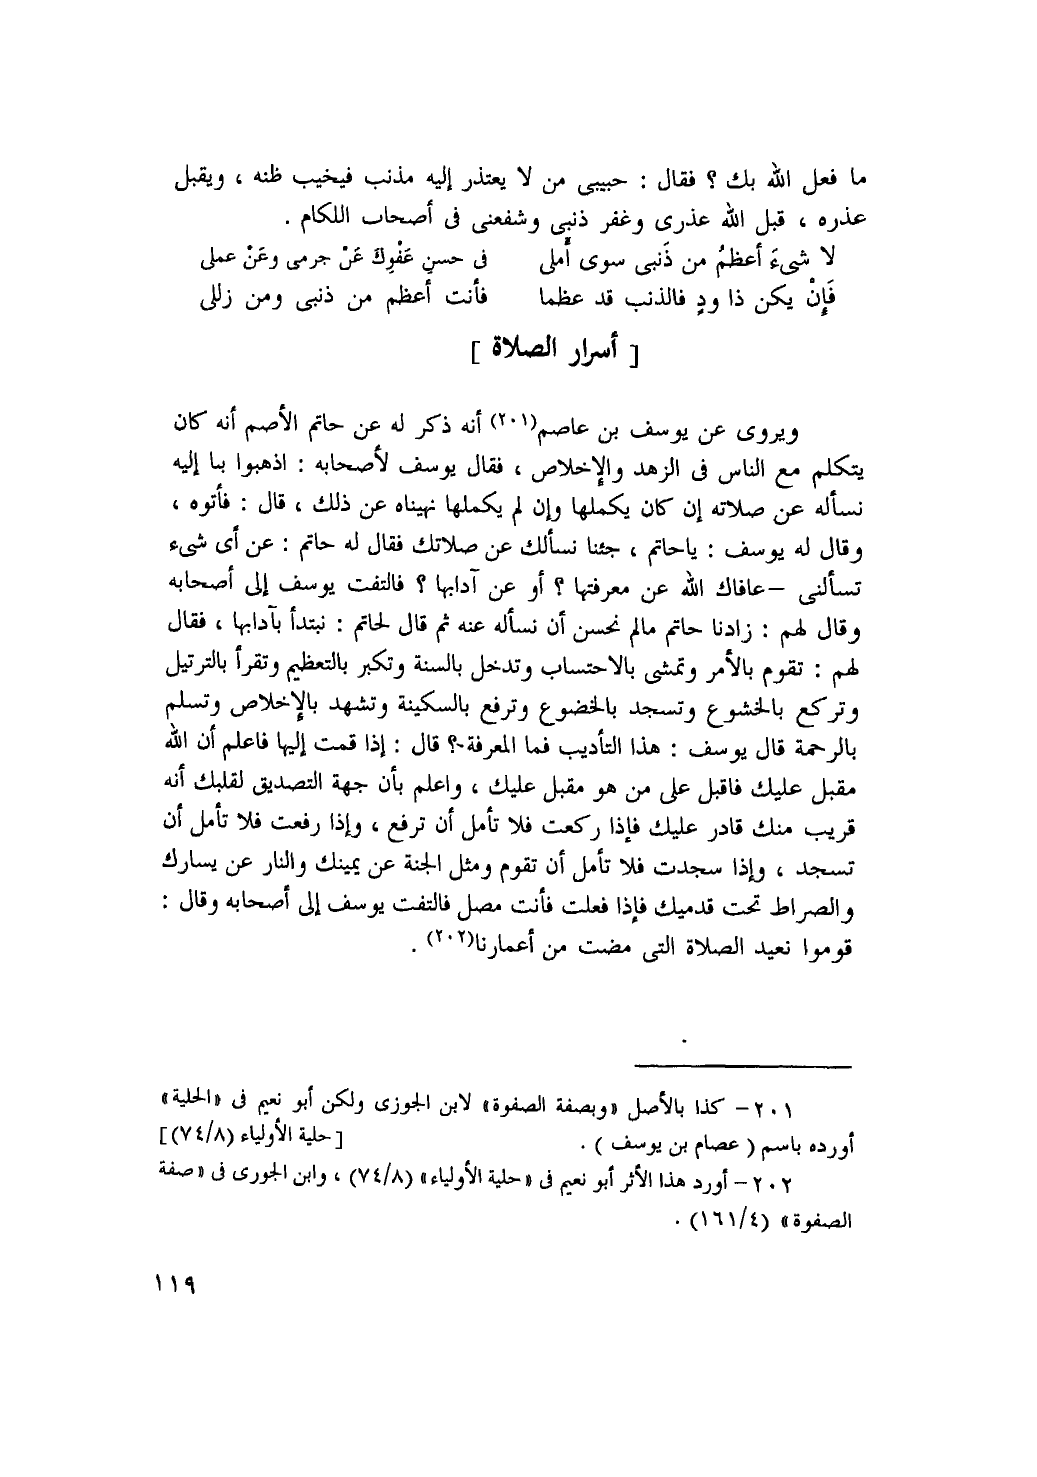 ما فعل الله بك ؟ فقال : حبيبى من لا يعتذر إليه مذنب فيخيب ظنه ، ويقبل
عذره ، قبل الله عذرى وغفر ذنبى وشفعنى فى أصحاب اللكام .
لا شىءَ أعظمُ من ذَنبى سوى أملى فى حسنِ عَفْوِكَ عَنْ جرمى وعَنْ عملى
فَإِنْ يكن ذا ودٍ فالذنب قد عظما فأنت أعظم من ذنبى ومن زللى
[ أسرار الصلاة ]
ويروى عن يوسف بن عاصم(٢٠١) أنه ذكر له عن حاتم الأصم أنه كان
يتكلم مع الناس فى الزهد والإخلاص ، فقال يوسف لأصحابه : اذهبوا بنا إليه
نسأله عن صلاته إن كان يكملها وإن لم يكملها نهيناه عن ذلك ، قال : فأتوه ،
وقال له يوسف : ياحاتم ، جئنا نسألك عن صلاتك فقال له حاتم : عن أى شىء
تسألنى –عافاك الله عن معرفتها ؟ أو عن آدابها ؟ فالتفت يوسف إلى أصحابه
وقال لهم : زادنا حاتم مالم نحسن أن نسأله عنه ثم قال لحاتم : نبتدأ بآدابها ، فقال
لهم : تقوم بالأمر وتمشى بالاحتساب وتدخل بالسنة وتكبر بالتعظيم وتقرأ بالترتيل
وتركع بالخشوع وتسجد بالخضوع وترفع بالسكينة وتشهد بالإخلاص وتسلم
بالرحمة قال يوسف : هذا التأديب فما المعرفة ؟ قال : إذا قمت إليها فاعلم أن الله
مقبل عليك فاقبل على من هو مقبل عليك ، واعلم بأن جهة التصديق لقلبك أنه
قريب منك قادر عليك فإذا ركعت فلا تأمل أن ترفع ، وإذا رفعت فلا تأمل أن
تسجد ، وإذا سجدت فلا تأمل أن تقوم ومثل الجنة عن يمينك والنار عن يسارك
والصراط تحت قدميك فإذا فعلت فأنت مصل فالتفت يوسف إلى أصحابه وقال :
قوموا نعيد الصلاة التى مضت من أعمارنا(٢٠٢) .
٢٠١– كذا بالأصل «وبصفة الصفوة» لابن الجوزى ولكن أبو نعيم فى «الحلية»
أورده باسم ( عصام بن يوسف ) . [حلية الأولياء (٧٤/٨)]
٢٠٢– أورد هذا الأثر أبو نعيم فى «حلية الأولياء» (٧٤/٨) ، وابن الجورى فى «صفة
الصفوة» (١٦١/٤) .
١١٩